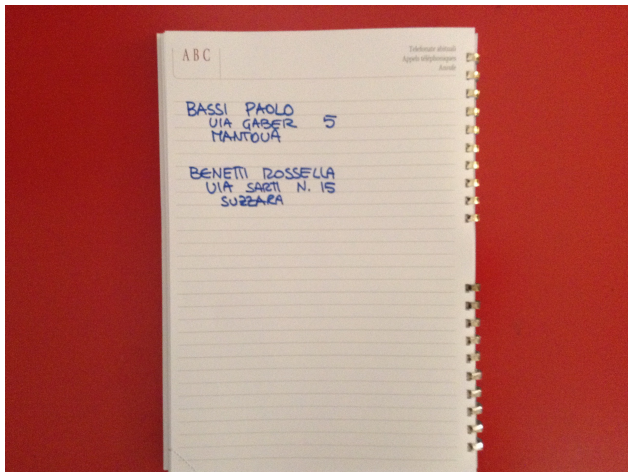 ABC
Telefonate abituali
Appels téléphoniques
BASSI PAOLO
VIA GABER 5
MANTOVA
BENETTI ROSSELLA
VIA SARTI N. 15
SUZZARA